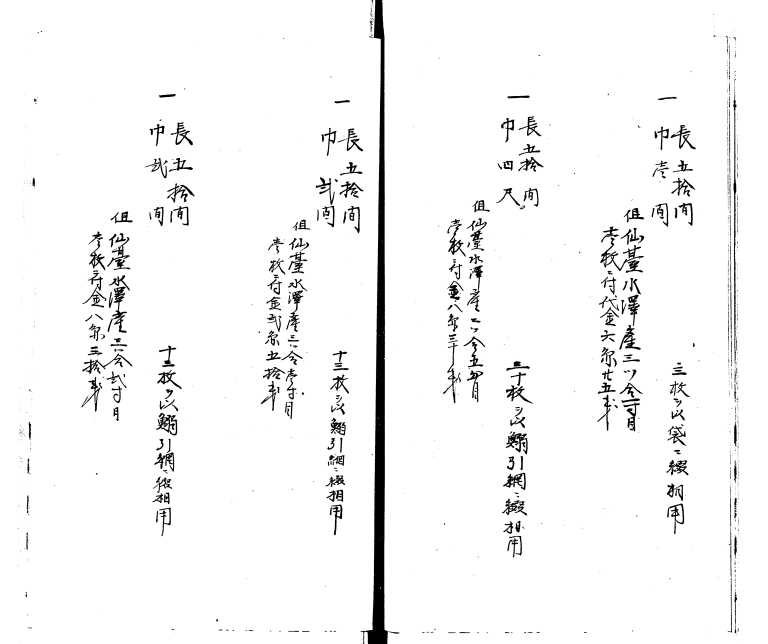 一 長五拾間
巾壱間
三枚ヲ以袋ニ綴相用
但仙臺水澤産三ツ合一寸目
壱枚ニ付代金六円廿五戋
一 長五拾間
巾四尺
三十枚ヲ以鰯引網ニ綴相用
但仙臺水澤産三ツ合五分目
壱枚ニ付金八円三十戋
一 長五拾間
巾弐間
十三枚ヲ以鰯引網ニ綴相用
但仙臺水澤産三ツ合壱寸目
壱枚ニ付金弐円五拾戋
一 長五拾間
巾弐間
十三枚ヲ以鰯引網ニ綴相用
但仙臺水澤産三ツ合弐寸目
壱枚ニ付金八円三拾戋